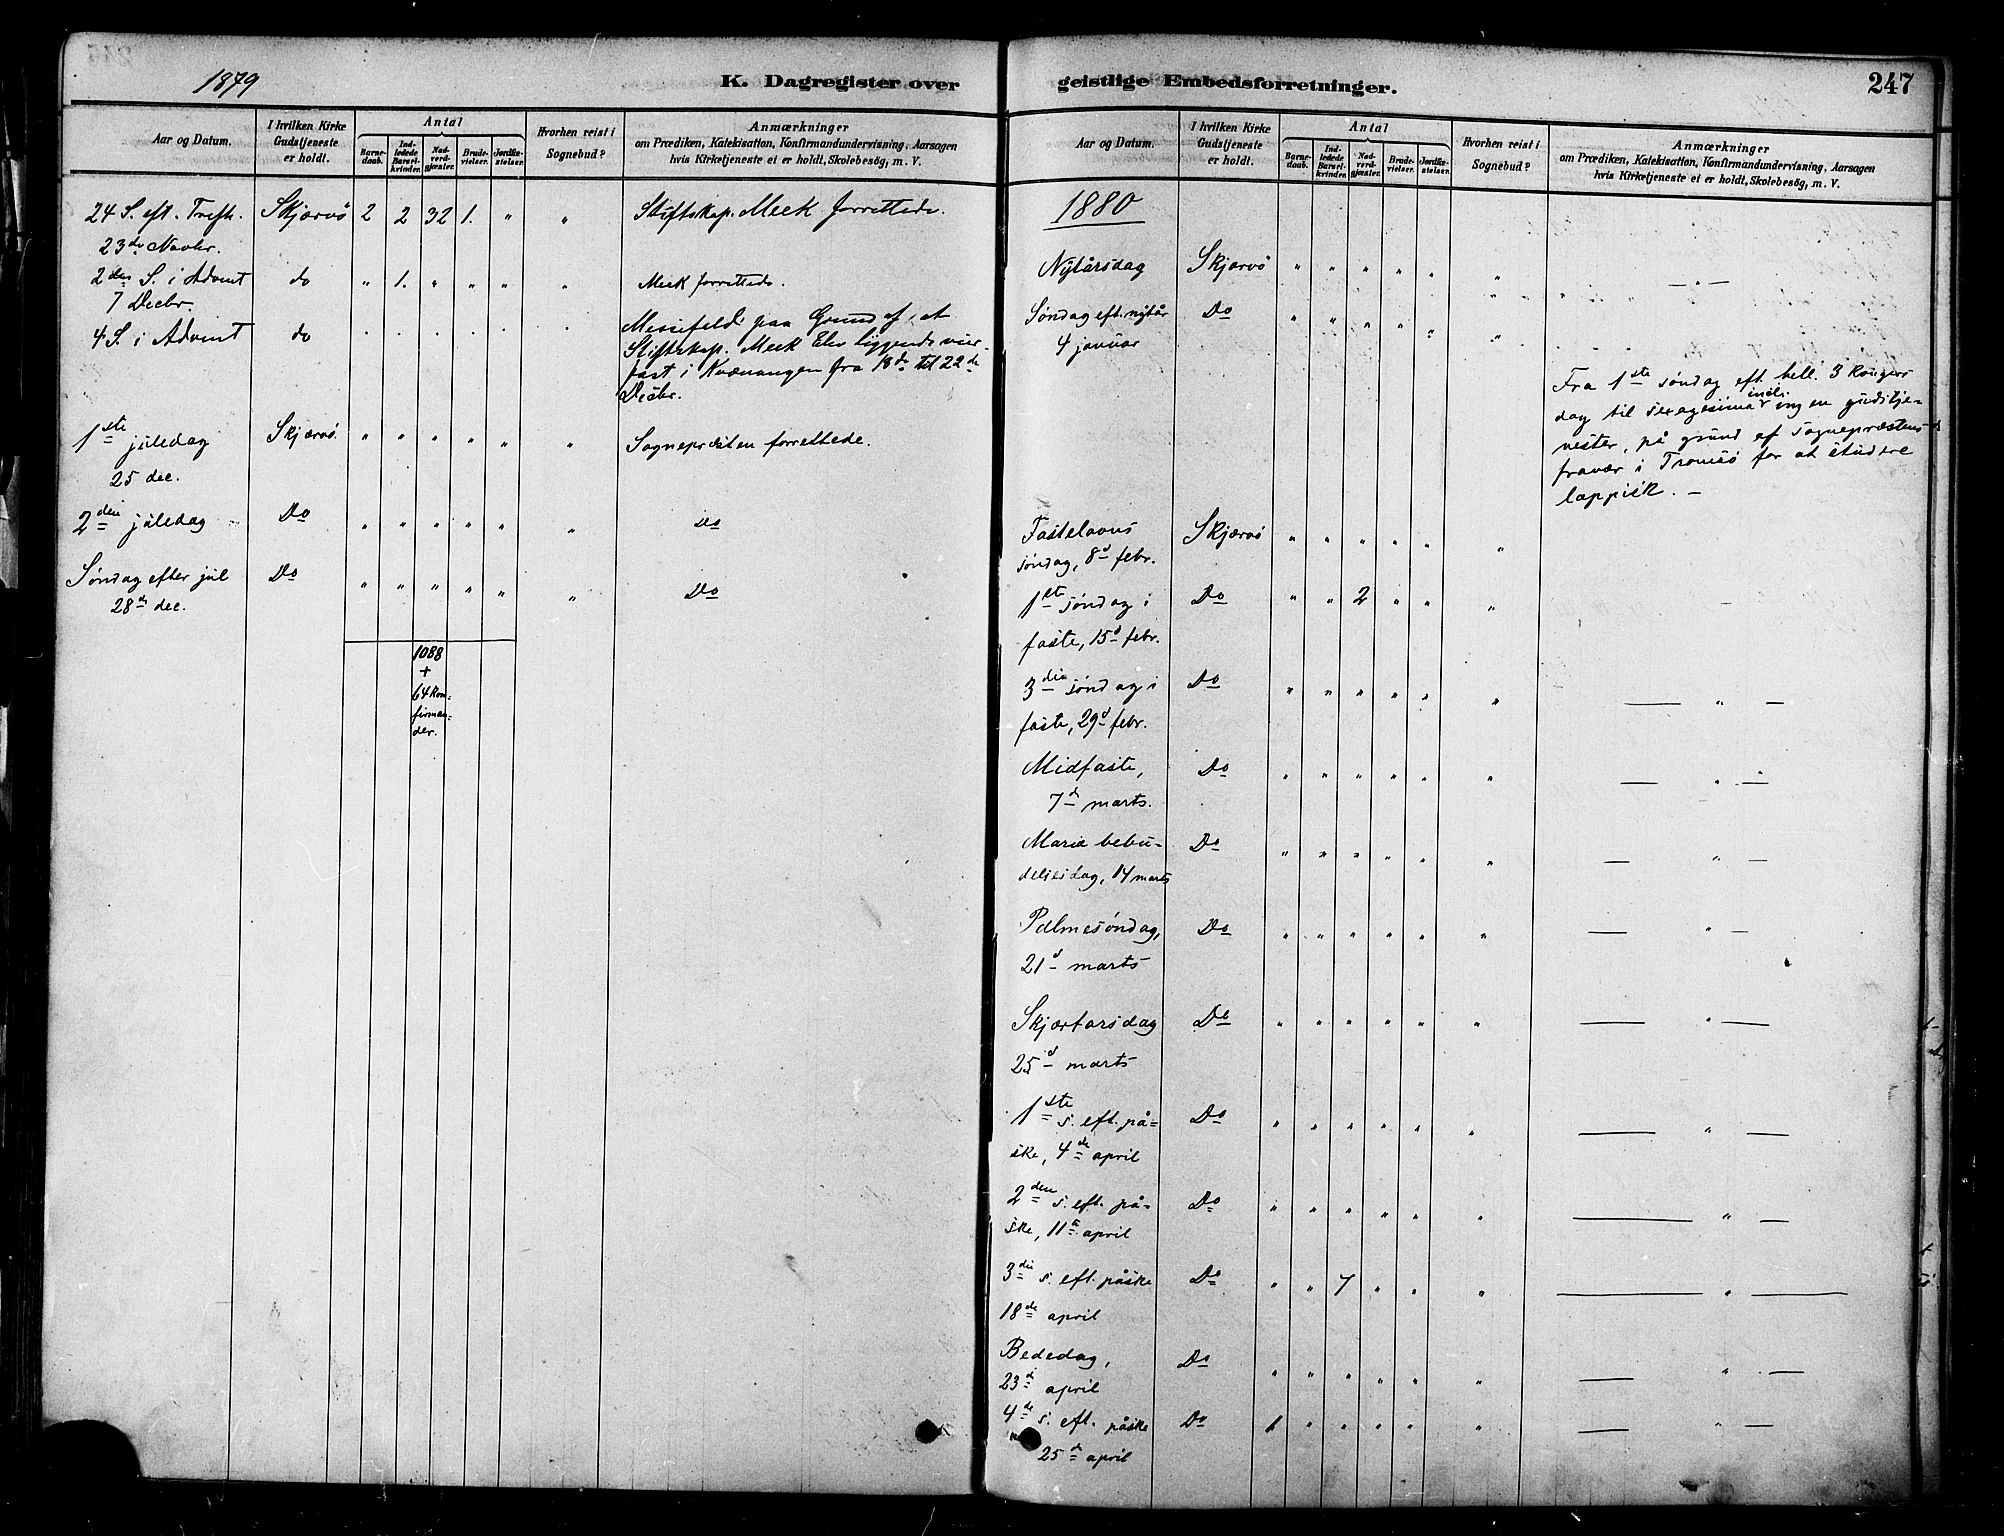 1879
K. Dagregister over
Aar og Datum.
I hvilken Kirke Gudstjeneste er holdt.
Antal
Barnedaab.
Indledede Barselkvinder.
Nadverdgjæster.
Brudevielser.
Jordfæstelser.
Hvorhen reist i Sognebud?
Anmærkninger
om Prædiken, Katekisation, Konfirmandundervisning, Aarsagen
hvis Kirketjeneste ei er holdt, Skolebesög, m. V.
24 S. eft. Trefh. Skjærvö 2 2 32 1. " " Stiftskap. Meek forrettede.
23de Novbr.
2den S. i Advent do " 1. " " " " Meek forrettede.
7 Decbr.
4 S. i Advent do . . . . . . Messefald paa Grund af, at
Stiftskap. Meek liggende vær-
fast i Kvænangen fra 18de til 22de
Decbr.
1ste juledag Skjærvö. " " " " " " Sognepresten forrettede.
25 dec.
2den juledag Do " " " " " " Do
Søndag efter jul Do " " " " " " Do
28de dec.
1088
+
64 Kon-
firman-
der.
geistlige Embedsforretninger.
247
Aar og Datum.
I hvilken Kirke Gudstjeneste er holdt.
Antal
Barnedaab.
Indledede Barselkvinder.
Nadverdgjæster.
Brudevielser.
Jordfæstelser.
Hvorhen reist i Sognebud?
Anmærkninger
om Prædiken, Katekisation, Konfirmandundervisning, Aarsagen
hvis Kirketjeneste ei er holdt, Skolebesög, m. V.
1880
Nytårsdag Skjærvö " " " " " " — " —
Søndag eft. nytår Do " " " " " "
4 januar
Fra 1ste søndag eft. hell. 3 Konger
dag til sexagesima incl. ingen gudstje-
nester, på grund af sognepræstens
fravær i Tromsö for at studere
lappisk. —
Fastelavns Skjærvö " " " " " "
søndag, 8d febr.
1ste søndag i Do " " 2 " " "
faste, 15d febr.
3die søndag i Do " " " " " " — " —
faste, 29d febr.
Midfaste, Do " " " " " " — " —
7d marts.
Mariæ bebu- Do " " " " " " — " —
delsesdag, 14 marts
Palmesøndag, Do " " " " " " — " —
21d marts
Skjærtorsdag Do " " " " " " — " —
25d marts
1ste s. eft. på- Do " " " " " " — " —
ske, 4de april
2den s. eft. på- Do " " " " " " — " —
ske, 11te april
3die s. eft. påske Do " " 7 " " " — " —
18de april
Bededag, Do " " " " " " — " —
23d april
4de s. eft. påske Do 1 " " " " " — " —
25d april